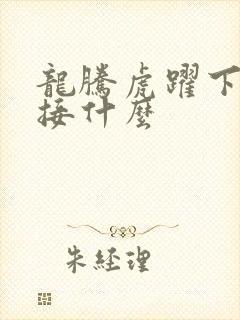 龍騰虎躍下
接什麼
朱經理